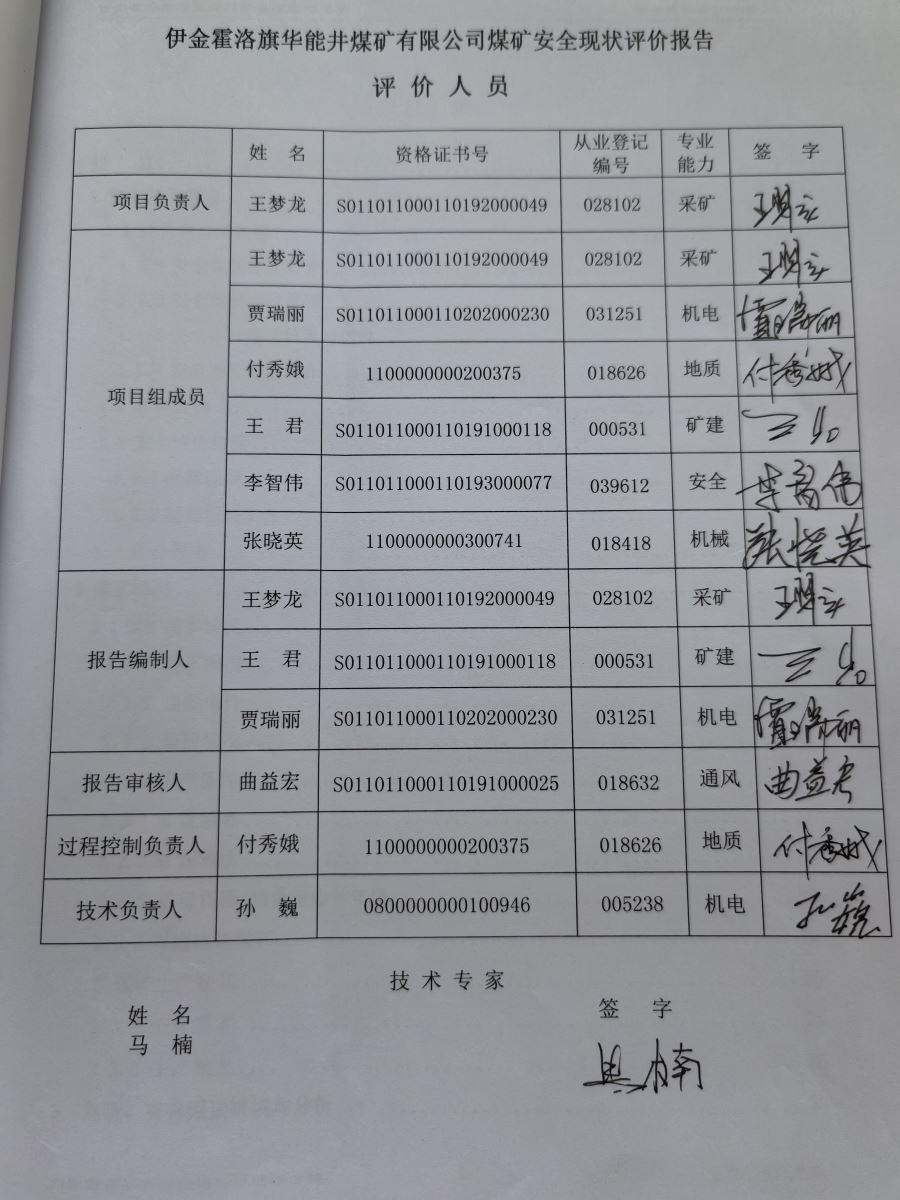 伊金霍洛旗华能井煤矿有限公司煤矿安全现状评价报告
评 价 人 员
姓 名 资格证书号 从业登记编号 专业能力 签 字
项目负责人 王梦龙 S011011000110192000049 028102 采矿 王梦龙
项目组成员 王梦龙 S011011000110192000049 028102 采矿 王梦龙
贾瑞丽 S011011000110202000230 031251 机电 贾瑞丽
付秀娥 1100000000200375 018626 地质 付秀娥
王 君 S011011000110191000118 000531 矿建 王君
李智伟 S011011000110193000077 039612 安全 李智伟
张晓英 1100000000300741 018418 机械 张晓英
报告编制人 王梦龙 S011011000110192000049 028102 采矿 王梦龙
王 君 S011011000110191000118 000531 矿建 王君
贾瑞丽 S011011000110202000230 031251 机电 贾瑞丽
报告审核人 曲益宏 S011011000110191000025 018632 通风 曲益宏
过程控制负责人 付秀娥 1100000000200375 018626 地质 付秀娥
技术负责人 孙 巍 0800000000100946 005238 机电 孙巍
技 术 专 家
姓 名 签 字
马 楠 马楠